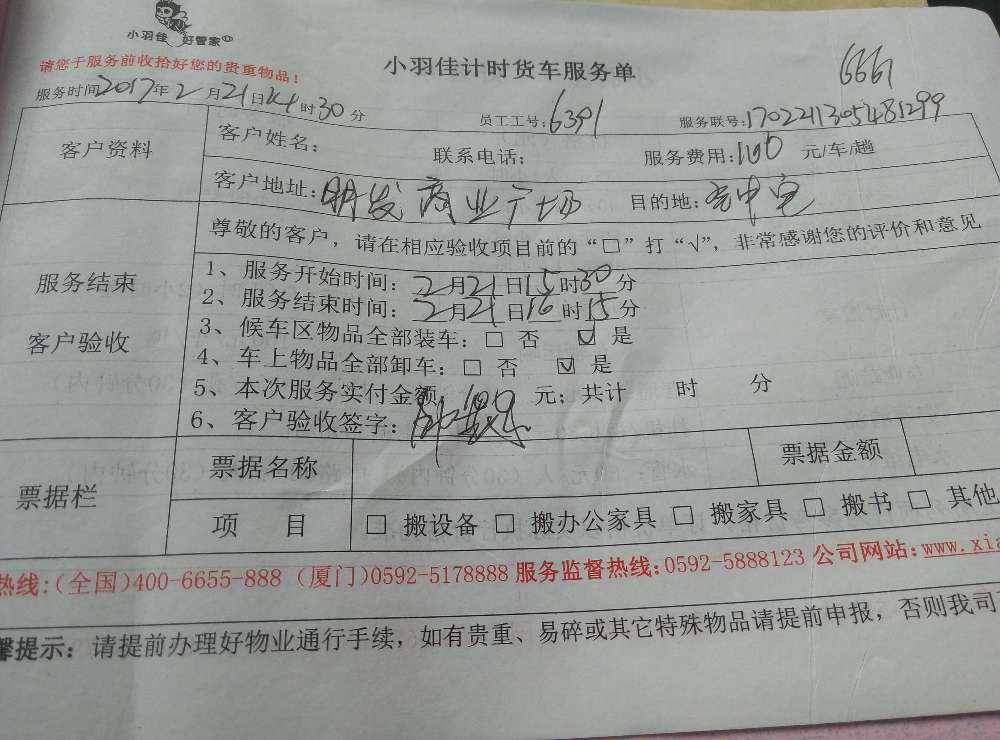 小羽佳 好管家
请您于服务前收拾好您的贵重物品!
小羽佳计时货车服务单
6661
服务时间2017年2月21日14时30分 员工工号:6391 服务联号:1702211305481299
客户资料
客户姓名: 联系电话: 服务费用:100 元/车/趟
客户地址:明发商业广场 目的地:
服务结束
客户验收
尊敬的客户，请在相应验收项目前的“□”打“√”，非常感谢您的评价和意见
1、服务开始时间:2月21日15时30分
2、服务结束时间:2月21日16时15分
3、候车区物品全部装车:□ 否 ☑ 是
4、车上物品全部卸车:□ 否 ☑ 是
5、本次服务实付金额: 元;共计 时 分
6、客户验收签字:
票据栏
票据名称 票据金额
项 目 □ 搬设备 □ 搬办公家具 □ 搬家具 □ 搬书 □ 其他
热线:(全国)400-6655-888 (厦门)0592-5178888 服务监督热线:0592-5888123 公司网站:www.xia
馨提示: 请提前办理好物业通行手续，如有贵重、易碎或其它特殊物品请提前申报，否则我司